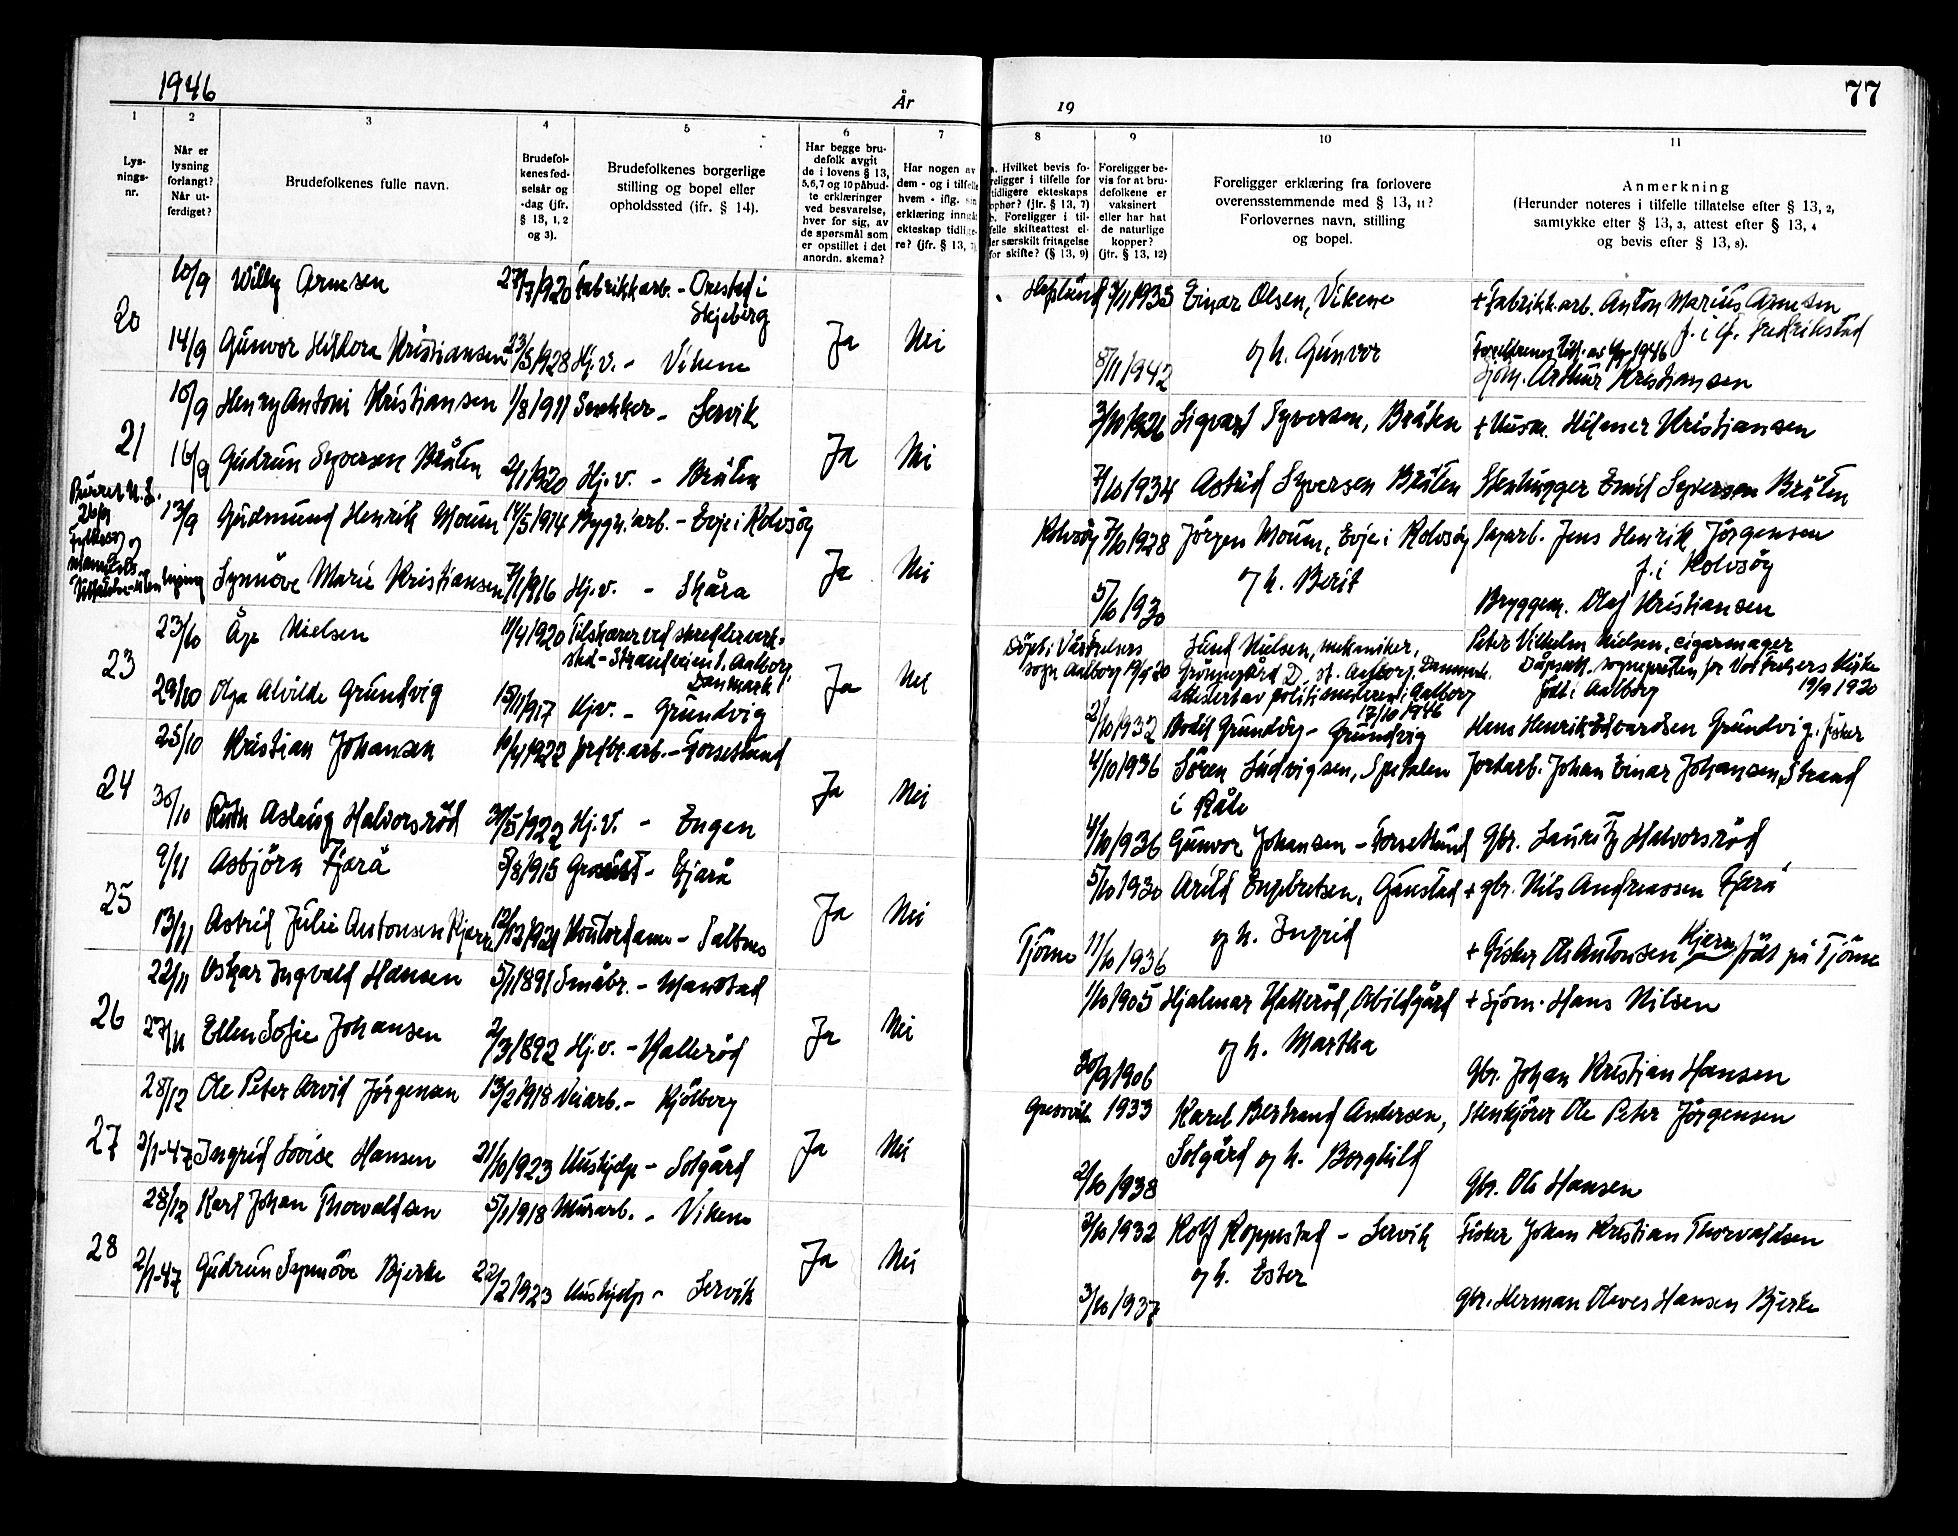 1946
År
19
77
1
2
3
4
5
6
7
8
9
10
11
Lys-
nings-
nr.
Når er
lysning
forlangt?
Når ut-
ferdiget?
Brudefolkenes fulle navn.
Brudefol-
kenes fød-
selsår og
-dag (jfr.
§ 13, 1, 2
og 3).
Brudefolkenes borgerlige
stilling og bopel eller
opholdssted (ifr. § 14).
Har begge bru-
defolk avgit
de i lovens § 13,
5,6,7 og 10 påbud-
te erklæringer
ved besvarelse,
hver for sig, av
de spørsmål som
er opstillet i det
anordn. skema?
Har nogen av
dem - og i tilfelle
hvem - iflg. sin
erklæring inngått
ekteskap tidlige-
re? (jfr. § 13, 7)
a. Hvilket bevis fo-
religger i tilfelle for
tidligere ekteskaps
ophør? (jfr. § 13, 7)
b. Foreligger i til-
felle skifteattest el-
ler særskilt fritagelse
for skifte? (§ 13, 9)
Foreligger be-
vis for at bru-
defolkene er
vaksinert
eller har hat
de naturlige
kopper?
(jtr. § 13, 12)
Foreligger erklæring fra forlovere
overensstemmende med § 13, 11?
Forlovernes navn, stilling
og bopel.
Anmerkning
(Herunder noteres i tilfelle tillatelse efter § 13, 2,
samtykke efter § 13, 3, attest efter § 13, 4
og bevis efter § 13, 8).
20
10/9 Willy Arnesen 27/7 1920 Fabrikkarb. - Orestad i
Skjeberg
Haslund 3/11 1933 Einar Olsen, Vikene + Fabrikk.arb. Anton Marius Arnesen
f. i Gl. Fredrikstad
14/9 Gunvor Hildora Kristiansen 23/5 1928 Hj.v. - Vikene Ja Nei
8/11 1942 og h. Gunvor
1946
Sjøm. Arthur Kristiansen
21
10/9 Henry Antoni Kristiansen 1/8 1911 Snekker - Lervik
3/10 1926 Sigvart Syversen, Bråten + Husm. Hilmer Kristiansen
16/9 Gudrun Syversen Bråten 2/1 1920 Hj.v. - Bråten Ja Nei
7/10 1934 Astrid Syversen Bråten Stenhugger Emil Syversen Bråten
13/9 Gudmund Henrik Moum 14/5 1914 Bygn.arb. - Evje i Rolvsøy
Rolvsøy 7/10 1928 Jörgen Moum, Evje i Rolvsøy Sagarb. Jens Henrik Jörgensen
f. i Rolvsöy
Synnöve Marie Kristiansen 7/1 1916 Hj.v. - Skåra Ja Nei
5/10 1930 og h. Berit Bryggem. Olaf Kristiansen
23
23/10 Åge Nielsen 14/4 1920 Tilskærer ved skrædderverk-
sted - Strandveien 1. Aalborg,
Danmark
Döpt i Vor Frelsers
sogn Aalborg 19/9 20
mekaniker,
Danmark.
attestert av politimesteren i Aalborg
17/10 1946
Peter Vilhelm Nielsen, cigarmager
Dåpsatt. sognepresten for Vor Frelsers Kirke
19/9 1920
Född i Aalborg
29/10 Olga Alvilde Grundvig 15/11 1917 Hj.v. - Grundvig Ja Nei
2/10 1932 Bodil Grundvig - Grundvig Hans Henrik Edvardsen Grundvig, fisker
24
25/10 Kristian Johansen 14/4 1922 Jordbr.arb. - Torseklund
4/10 1936 Sören Ludvigsen, Spetalen Jordarb. Johan Einar Johansen, Strand
i Råde
30/10 Ruth Aslaug Halvorsröd 30/5 1922 Hj.V. - Engen Ja Nei
4/10 1936 Gunvor Johansen - Torseklund Gbr. Lauritz Halvorsröd
25
9/11 Asbjörn Fjærå 5/8 1915 - Fjærå
5/10 1930 Arild Engebretsen, Gunstad + gbr. Nils Andreassen Fjærå
13/11 Astrid Julie Antonsen Kjærn 12/3 1921 Kontordame - Saltnes Ja Nei
Tjöme 11/10 1936 og h. Ingrid + Fisker Ole Antonsen Kjærn, född på Tjöme
26
22/11 Oskar Ingvald Hansen 5/1 1891 Småbr. - Manstad
1/10 1905 Hjalmar Hatteröd, Abildgård + Sjöm. Hans Nilsen
27/11 Ellen Sofie Johansen 2/3 1892 Hj.v. - Hatteröd Ja Nei
30/9 1906 og h. Martha Gbr. Johan Kristian Hansen
27
28/12 Ole Peter Arvid Jörgensen 13/2 1918 Veiarb. - Kjölberg
Gressvik 1933 Karel Bertrand Andersen, Stenkjörer Ole Peter Jörgensen
2/1-47 Ingrid Lovise Hansen 21/10 1923 Hushjelp - Solgård Ja Nei
2/10 1938 Solgård og h. Borghild Gbr. Ole Hansen
28
28/12 Karl Johan Thorvaldsen 5/1 1918 Murarb. - Vikene
3/10 1932 Rolf Roppestad - Lervik Fisker Johan Kristian Thorvaldsen
2/1-47 Gudrun Synnöve Bjerke 22/2 1923 Hushjelp - Lervik Ja Nei
3/10 1937 og h. Ester Gbr. Herman Oliver Hansen Bjerke